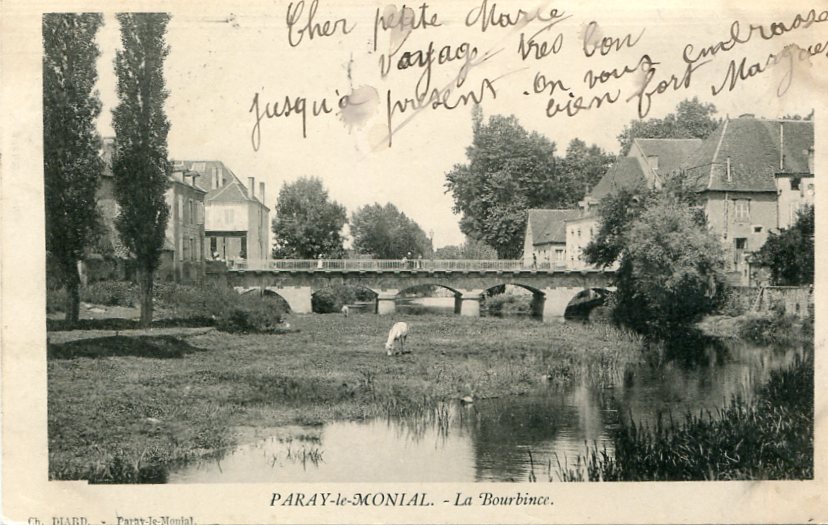 Cher petite Marie
voyage très bon
jusqu'à présent. on vous embrasse
bien fort Margue
PARAY-le-MONIAL. - La Bourbince.
Ch. DIARD. - Paray-le-Monial.